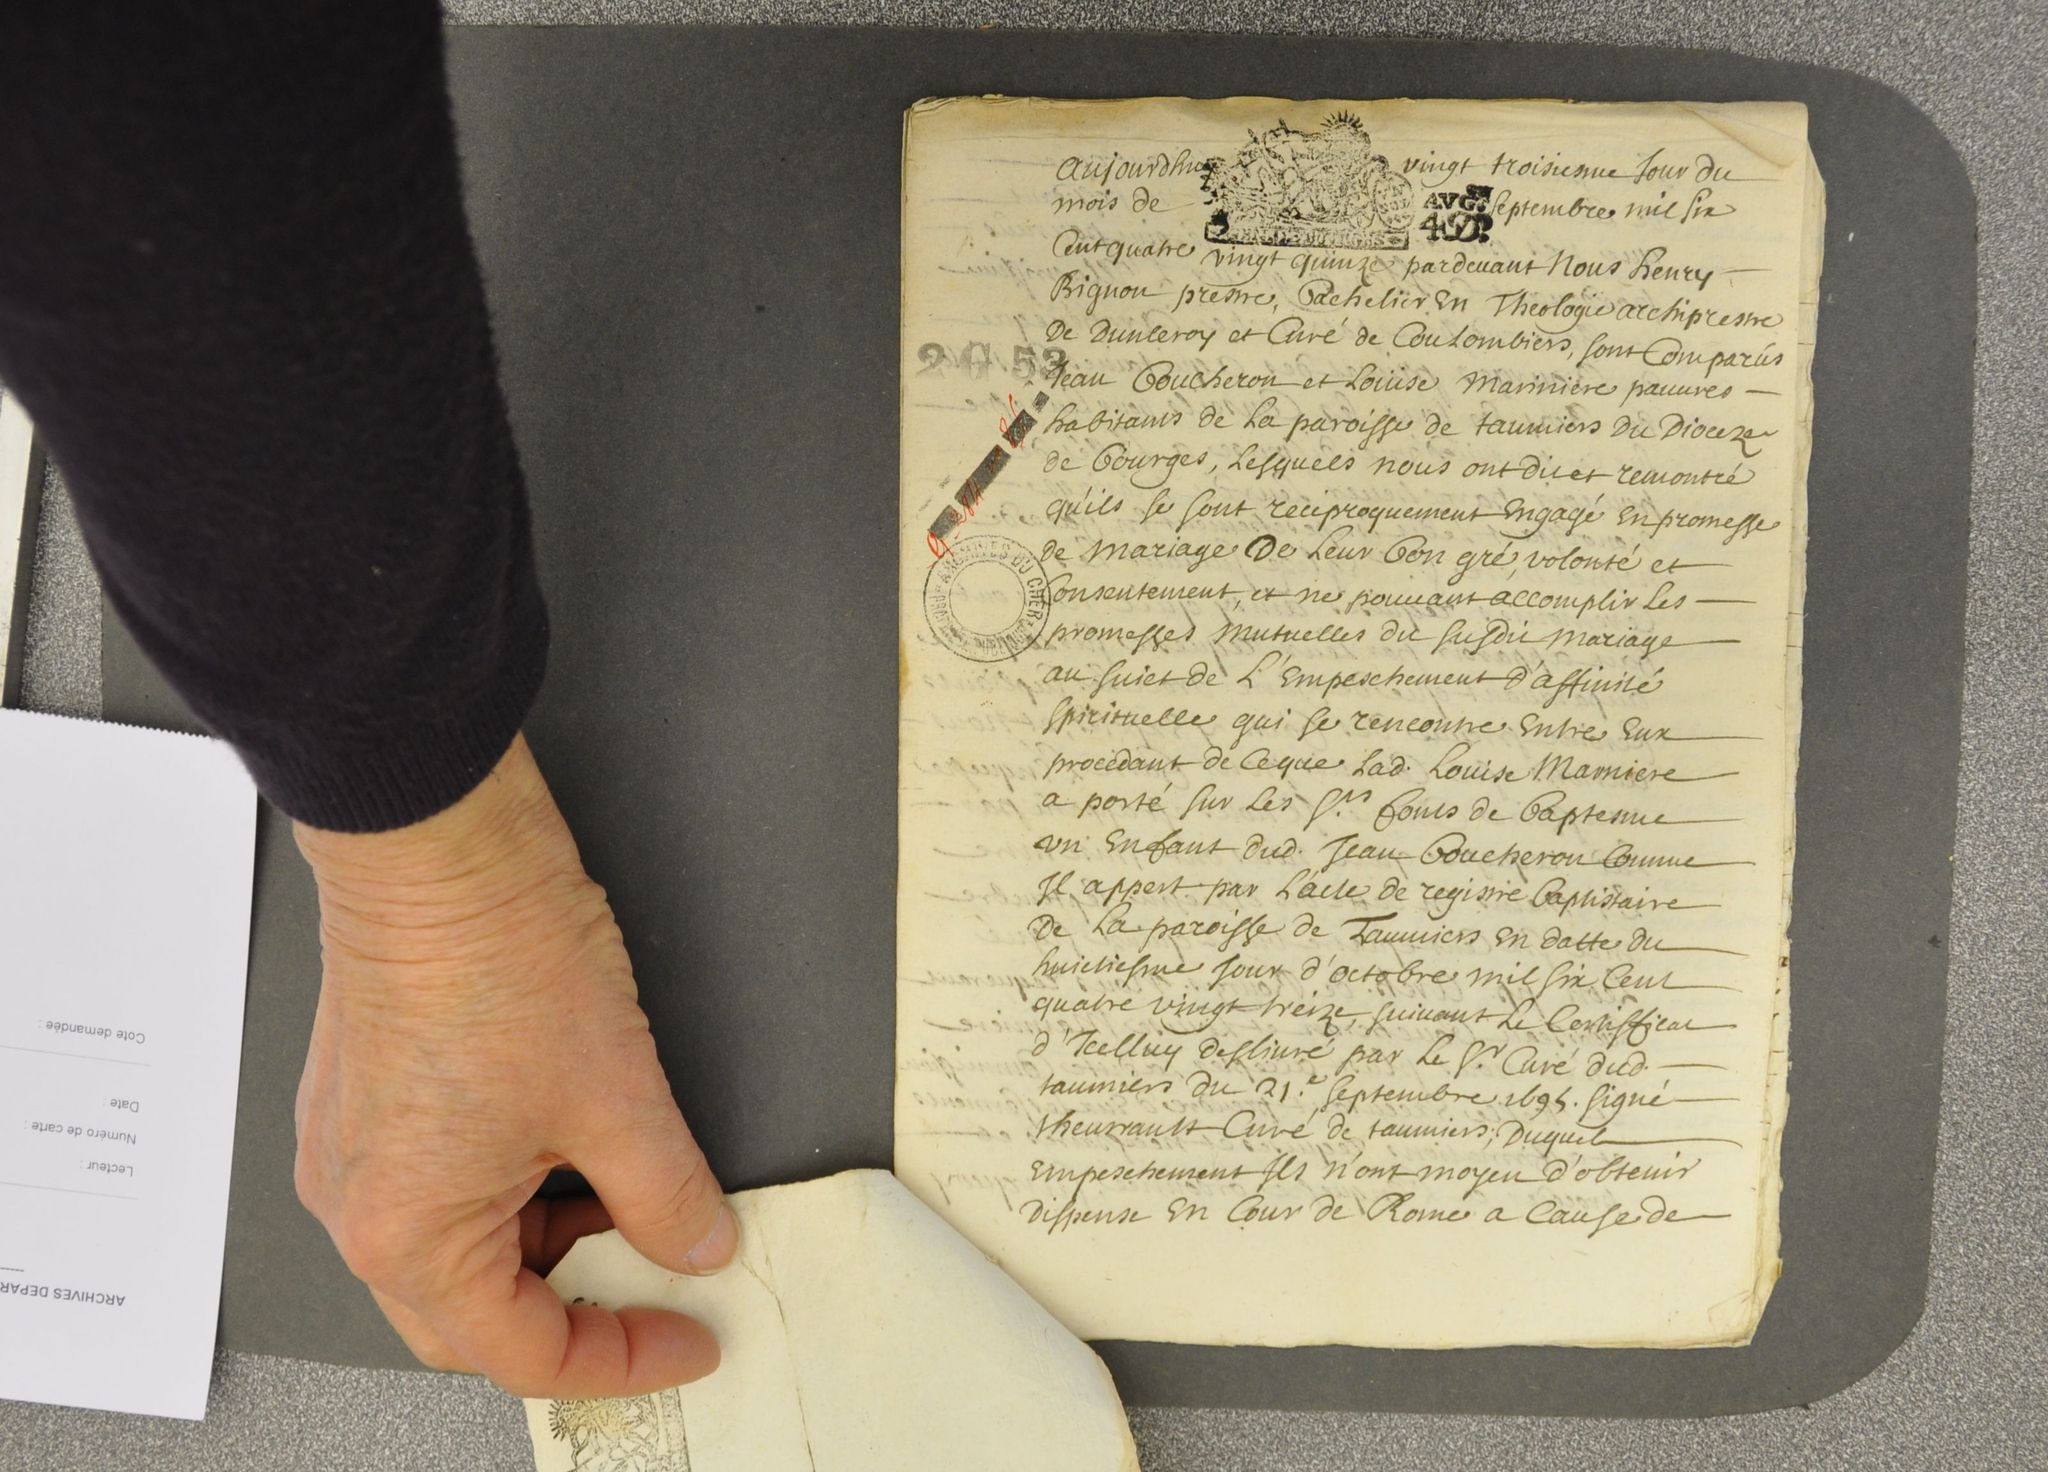 Aujourdhuy vingt troisiesme Jour du
mois de septembre mil six
AVG.ON
4D.
Cent quatre vingt quinze pardevant Nous henry
Bignon prestre, Bachelier En Theologie archiprestre
De Dunleroy et Curé de Coulombiers, sont Comparus
2 G 53
Jean Boucheron et Louise Marniere pauvres
habitants de La paroisse de taumiers Du Dioceze
de Bourges, Lesquels nous ont dit et remontré
qu'ils se sont reciproquement Engagé En promesse
de Mariage De Leur Bon gré, volonté et
Consentement, et ne pouvant accomplir Les
promesses Mutuelles du susdit Mariage
au suiet de L'Empeschement d'affinité
spirituelle qui se rencontre Entre Eux
procedant de Ceque Lad. Louise Marniere
a porté sur Les S.ts fonts de Baptesme
un Enfant dud. Jean Boucheron Comme
Il appert par L'acte de registre Baptistaire
De La paroisse de Taumiers En datte du
huictiesme Jour d'octobre mil six Cent
quatre vingt treize, suivant Le Certifficat
d'Icelluy deslivré par Le S.r Curé dud.
taumiers du 21.e septembre 1695. signé
theurrault Curé de taumiers, Duquel
Empeschement Ils n'ont moyen d'obtenir
Dispense En Cour de Rome a Cause de
ARCHIVES DU CHER
Cote demandée :
Date :
Numéro de carte :
Lecteur :
ARCHIVES DEPAR